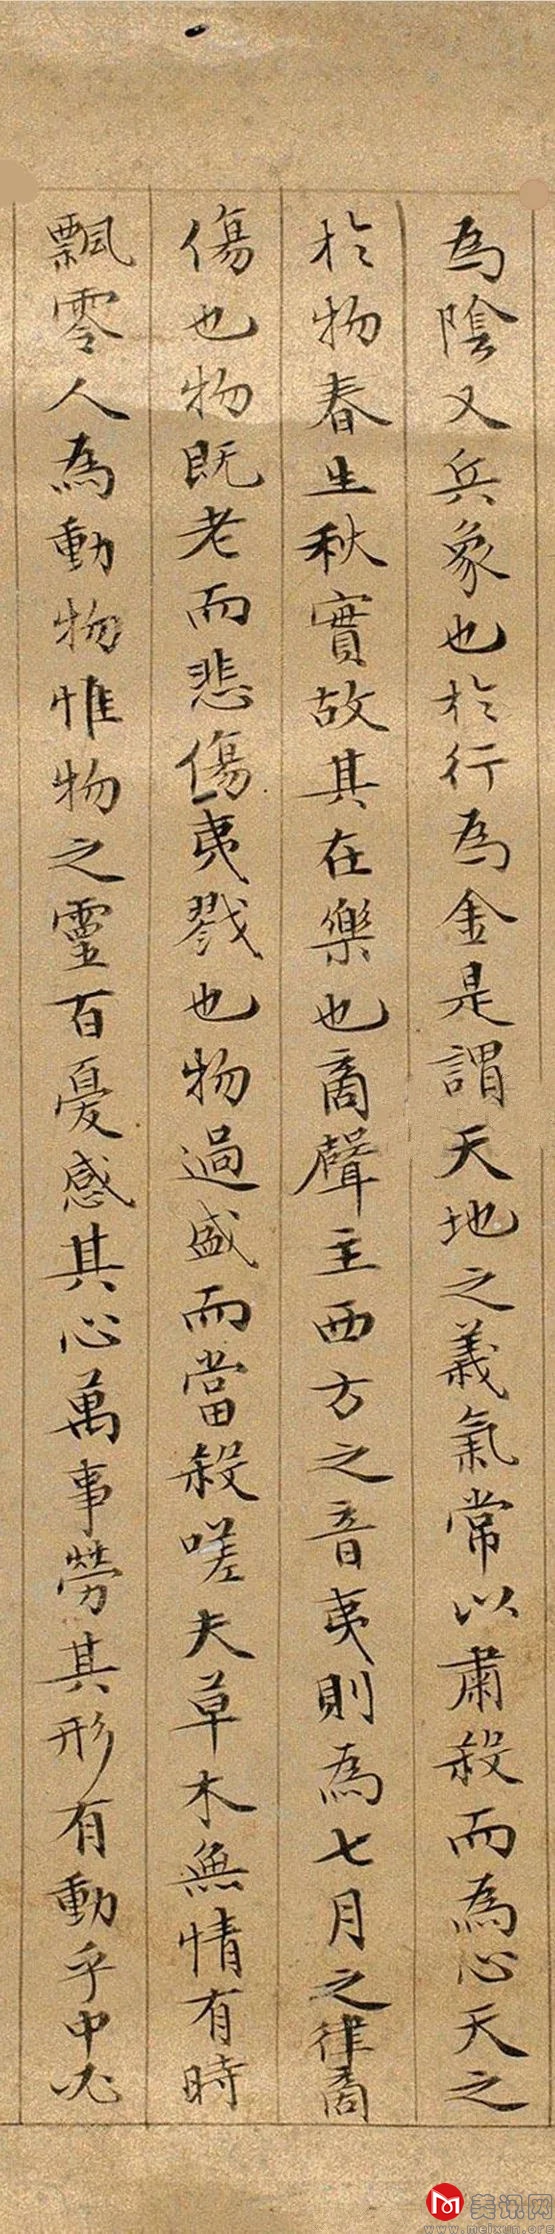 為陰又兵象也於行為金是謂天地之義氣常以肅殺而為心天之
於物春生秋實故其在樂也商聲主西方之音夷則為七月之律商
傷也物既老而悲傷夷戮也物過盛而當殺嗟夫草木無情有時
飄零人為動物惟物之靈百憂感其心萬事勞其形有動乎中必
美讯网
www.meixun.org